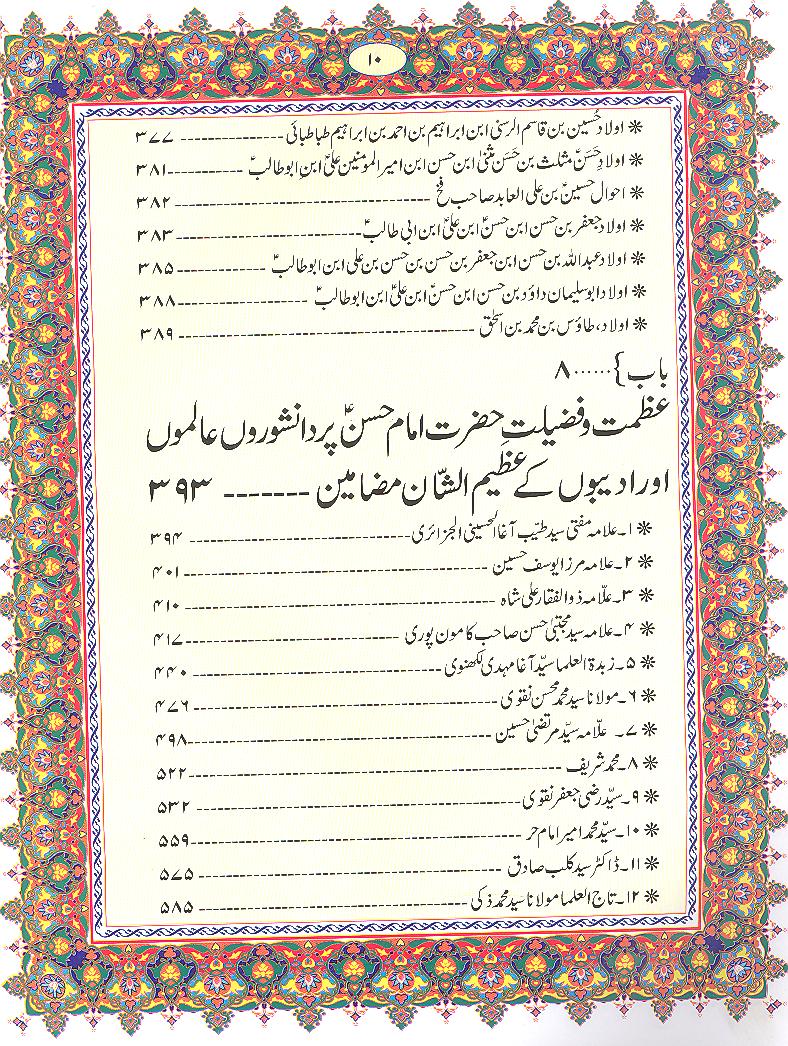 ۱۰
❋ اولاد حُسین بن قاسم الرسنی ابن ابراہیم بن احمد بن ابراہیم طباطبائی --------------- ۳۷۷
❋ اولادِ حَسنؑ مثلث بن حَسن مثنیٰ ابن حسن ابن امیر المومنین علیؑ ابنِ ابو طالبؑ ----------- ۳۸۱
❋ احوال حسینؑ بن علی العابد صاحب فخ ------------------------------------ ۳۸۲
❋ اولاد جعفر بن حسن ابن حسنؑ ابن علیؑ ابن ابی طالبؑ -------------------------- ۳۸۳
❋ اولاد عبداللہ بن حسن ابن جعفر بن حسن بن حسن بن علی ابن ابو طالبؑ ------------- ۳۸۵
❋ اولاد ابو سلیمان داؤد بن حسن ابن حسنؑ ابن علیؑ ابن ابو طالبؑ ------------------- ۳۸۸
❋ اولاد، طاؤس بن محمد بن اسحٰق ----------------------------------------- ۳۸۹
باب }......۸
عظمت و فضیلتِ حضرت امام حسنؑ پر دانشوروں عالموں
اور ادیبوں کے عظیم الشّان مضامین ------- ۳۹۳
❋ ۱۔علامہ مفتی سید طیّب آغا الحسینی الجزائری ------------------------------ ۳۹۴
❋ ۲۔علامہ مرزا یوسف حسین ------------------------------------------ ۴۰۱
❋ ۳۔علّامہ ذوالفقار علی شاہ ------------------------------------------ ۴۱۰
❋ ۴۔علامہ سید مجتبیٰ حسن صاحب کامون پوری ----------------------------- ۴۱۷
❋ ۵۔زبدۃ العلما سیّد آغا مہدی لکھنوی ---------------------------------- ۴۴۰
❋ ۶۔مولانا سید محمد محسن نقوی ---------------------------------------- ۴۷۶
❋ ۷۔ علّامہ سیّد مرتضیٰ حسین ----------------------------------------- ۴۹۸
❋ ۸۔محمد شریف -------------------------------------------------- ۵۲۲
❋ ۹۔سیّد رضی جعفر نقوی ------------------------------------------- ۵۳۲
❋ ۱۰۔سیّد محمد امیر امام حر ------------------------------------------- ۵۵۹
❋ ۱۱۔ڈاکٹر سید کلب صادق ----------------------------------------- ۵۷۵
❋ ۱۲۔تاج العلما مولانا سید محمد ذکی ------------------------------------- ۵۸۵